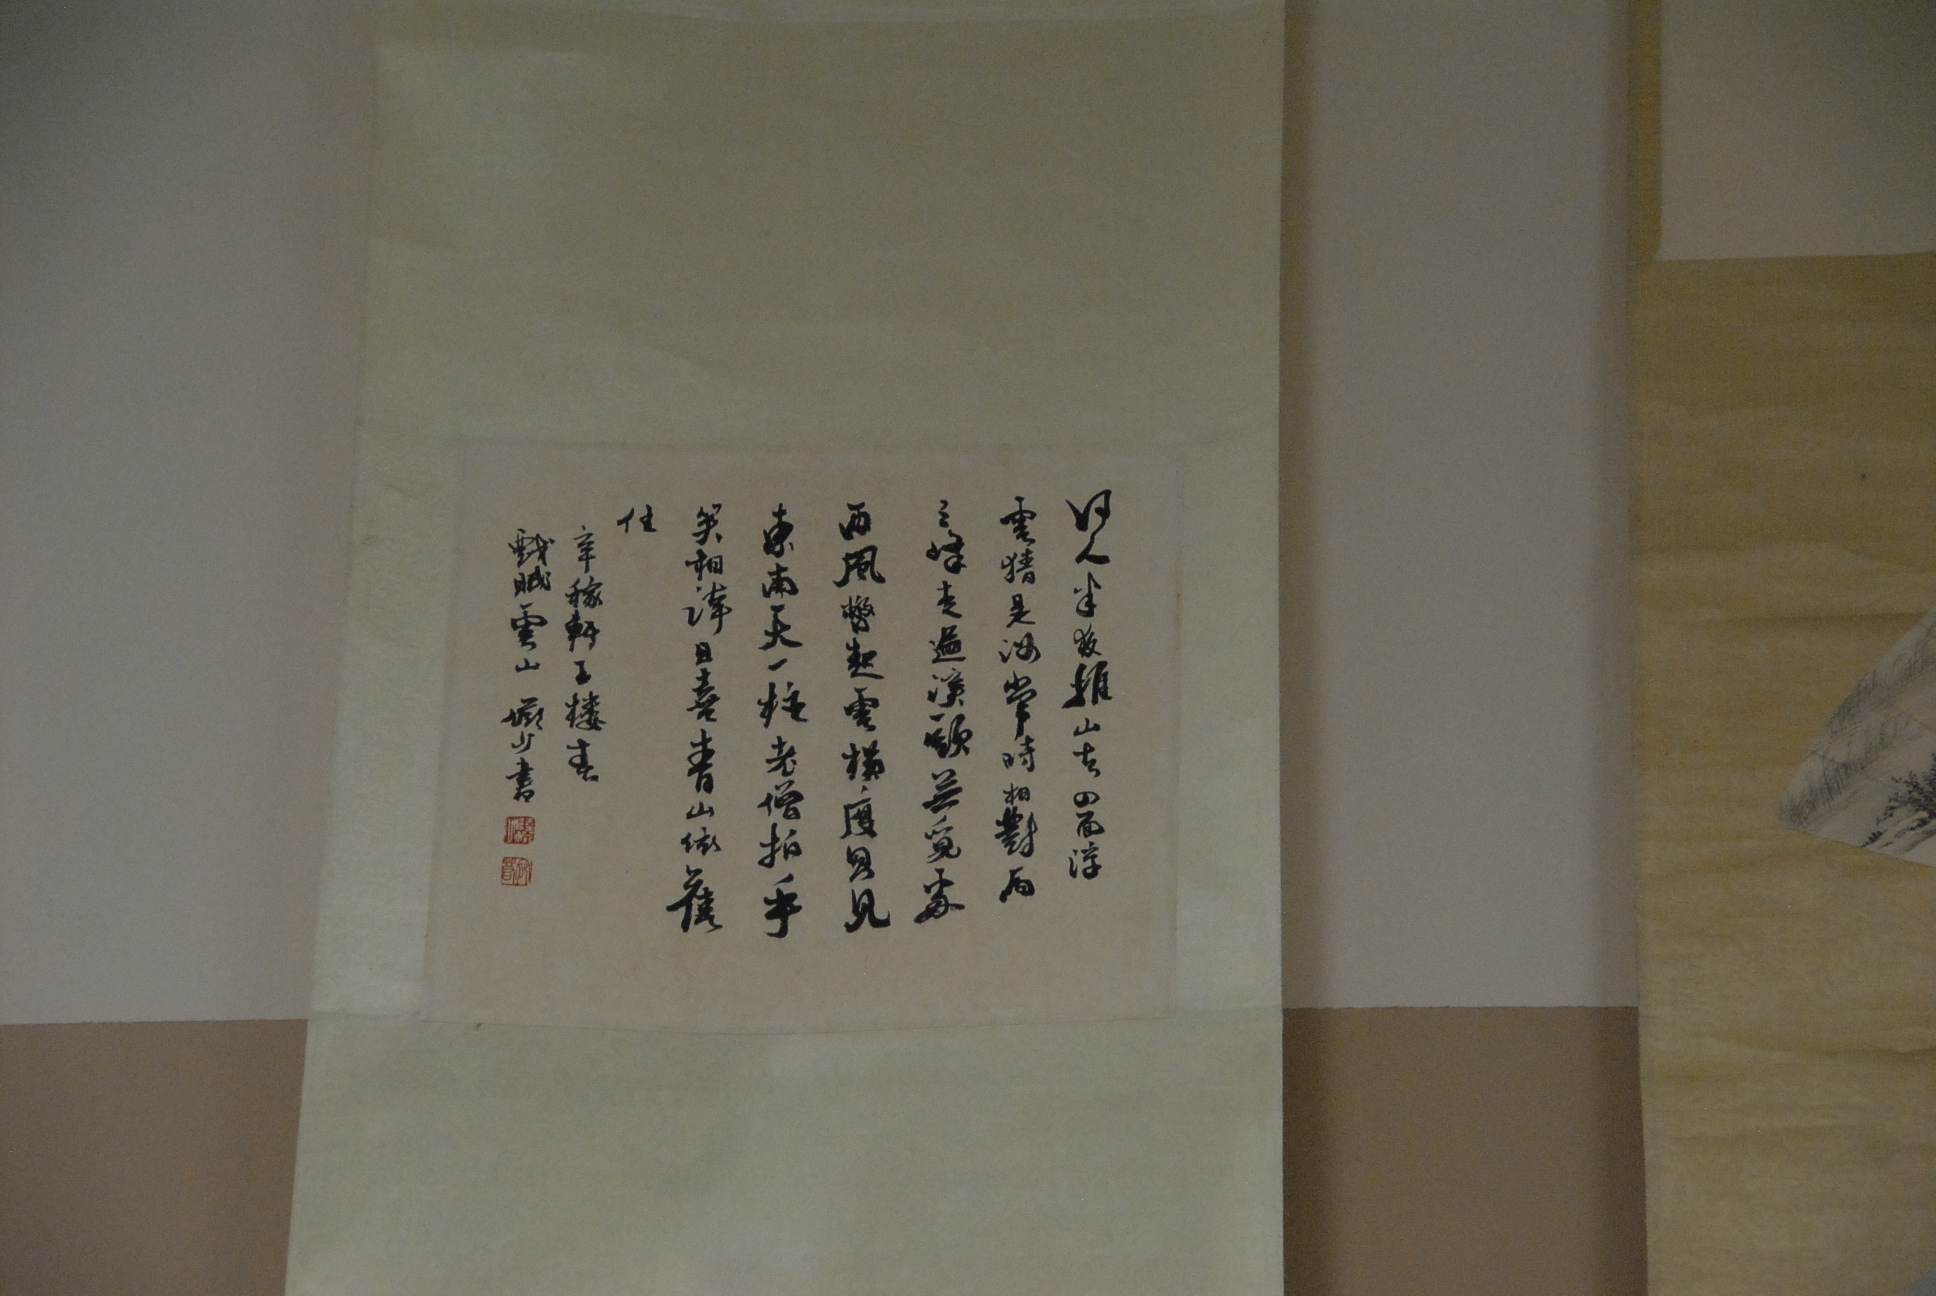 何人半夜推山去四面浮
雲猜是汝常時相對兩
三峰走遍溪頭無覓處
西風瞥起雲橫度忽見
東南天一柱老僧拍手
笑相誇且喜青山依舊
住
辛稼軒玉樓春
戲賦雲山 少書